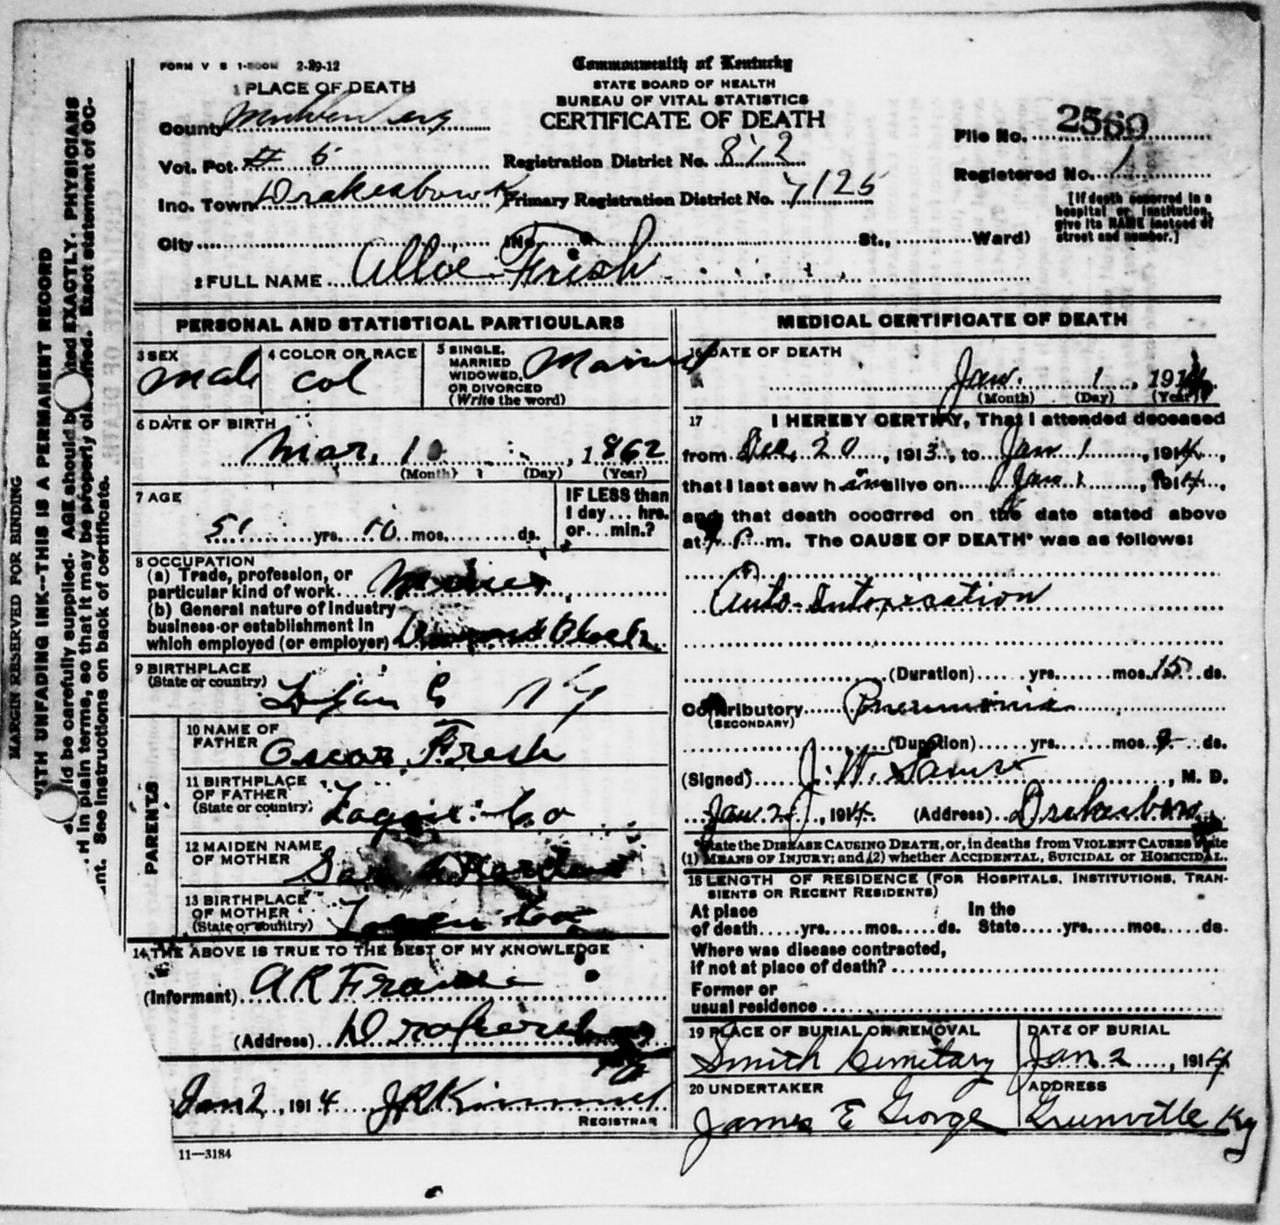 FORM V S 1-500M 2-29-12
Commonwealth of Kentucky
STATE BOARD OF HEALTH
BUREAU OF VITAL STATISTICS
CERTIFICATE OF DEATH
1 PLACE OF DEATH
County
Vot. Pct. # 5
Inc. Town
City
Registration District No. 812
Primary Registration District No. 7125
(No. St., Ward)
File No. 2569
Registered No. 1
[If death occurred in a
hospital or institution,
give its NAME instead of
street and number.]
2 FULL NAME
PERSONAL AND STATISTICAL PARTICULARS
3 SEX
Male
4 COLOR OR RACE
Col
5 SINGLE,
MARRIED
WIDOWED,
OR DIVORCED
(Write the word)
Married
6 DATE OF BIRTH
Mar. 10, 1862
(Month) (Day) (Year)
7 AGE
51 yrs. 10 mos. ds.
IF LESS than
1 day ... hrs.
or ... min.?
8 OCCUPATION
(a) Trade, profession, or
particular kind of work
(b) General nature of industry
business or establishment in
which employed (or employer)
9 BIRTHPLACE
(State or country)
Ky
PARENTS
10 NAME OF
FATHER
Oscar
11 BIRTHPLACE
OF FATHER
(State or country)
Co
12 MAIDEN NAME
OF MOTHER
13 BIRTHPLACE
OF MOTHER
(State or country)
14 THE ABOVE IS TRUE TO THE BEST OF MY KNOWLEDGE
(Informant) A R
(Address)
Jan 2, 1914 J R Kimmel
REGISTRAR
11—3184
MEDICAL CERTIFICATE OF DEATH
16 DATE OF DEATH
Jan. 1, 1914
(Month) (Day) (Year)
17 I HEREBY CERTIFY, That I attended deceased
from Dec. 20, 1913, to Jan 1, 1914,
that I last saw him alive on Jan 1, 1914,
and that death occurred on the date stated above
at P. m. The CAUSE OF DEATH* was as follows:
Auto-Intoxication
(Duration) yrs. mos. 15 ds.
Contributory Pneumonia
(SECONDARY)
(Duration) yrs. mos. ds.
(Signed) J. W. , M. D.
Jan 2, 1914 (Address)
*State the DISEASE CAUSING DEATH, or, in deaths from VIOLENT CAUSES state
(1) MEANS OF INJURY; and (2) whether ACCIDENTAL, SUICIDAL or HOMICIDAL.
18 LENGTH OF RESIDENCE (FOR HOSPITALS, INSTITUTIONS, TRAN-
SIENTS OR RECENT RESIDENTS)
At place
of death yrs. mos. ds.
In the
State yrs. mos. ds.
Where was disease contracted,
if not at place of death?
Former or
usual residence
19 PLACE OF BURIAL OR REMOVAL
Smith Cemetary
DATE OF BURIAL
Jan 2, 1914
20 UNDERTAKER
James E George
ADDRESS
Greenville Ky
MARGIN RESERVED FOR BINDING
WITH UNFADING INK—THIS IS A PERMANENT RECORD
ld be carefully supplied. AGE should be ted EXACTLY. PHYSICIANS
H in plain terms, so that it may be properly classified. Exact statement of OC-
nt. See instructions on back of certificate.